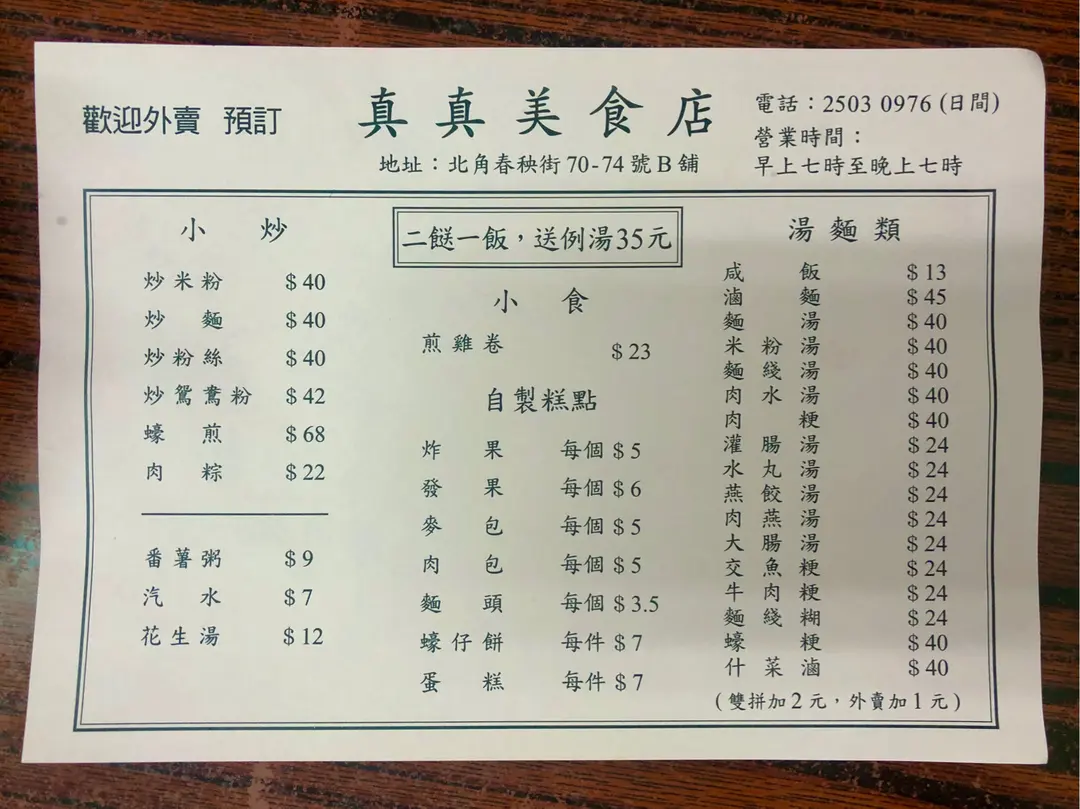 歡迎外賣 預訂
真真美食店
地址：北角春秧街70-74號B舖
電話：2503 0976 (日間)
營業時間：
早上七時至晚上七時
小炒
炒米粉 $40
炒麵 $40
炒粉絲 $40
炒鴛鴦粉 $42
蠔煎 $68
肉粽 $22
番薯粥 $9
汽水 $7
花生湯 $12
二餸一飯，送例湯35元
小食
煎雞卷 $23
自製糕點
炸果 每個 $5
發果 每個 $6
麥包 每個 $5
肉包 每個 $5
麵頭 每個 $3.5
蠔仔餅 每件 $7
蛋糕 每件 $7
湯麵類
咸飯 $13
滷麵 $45
麵湯 $40
米粉湯 $40
麵綫湯 $40
肉水湯 $40
肉粳 $40
灌腸湯 $24
水丸湯 $24
燕餃湯 $24
肉燕湯 $24
大腸湯 $24
交魚粳 $24
牛肉粳 $24
麵綫糊 $24
蠔粳 $40
什菜滷 $40
(雙拼加2元，外賣加1元)